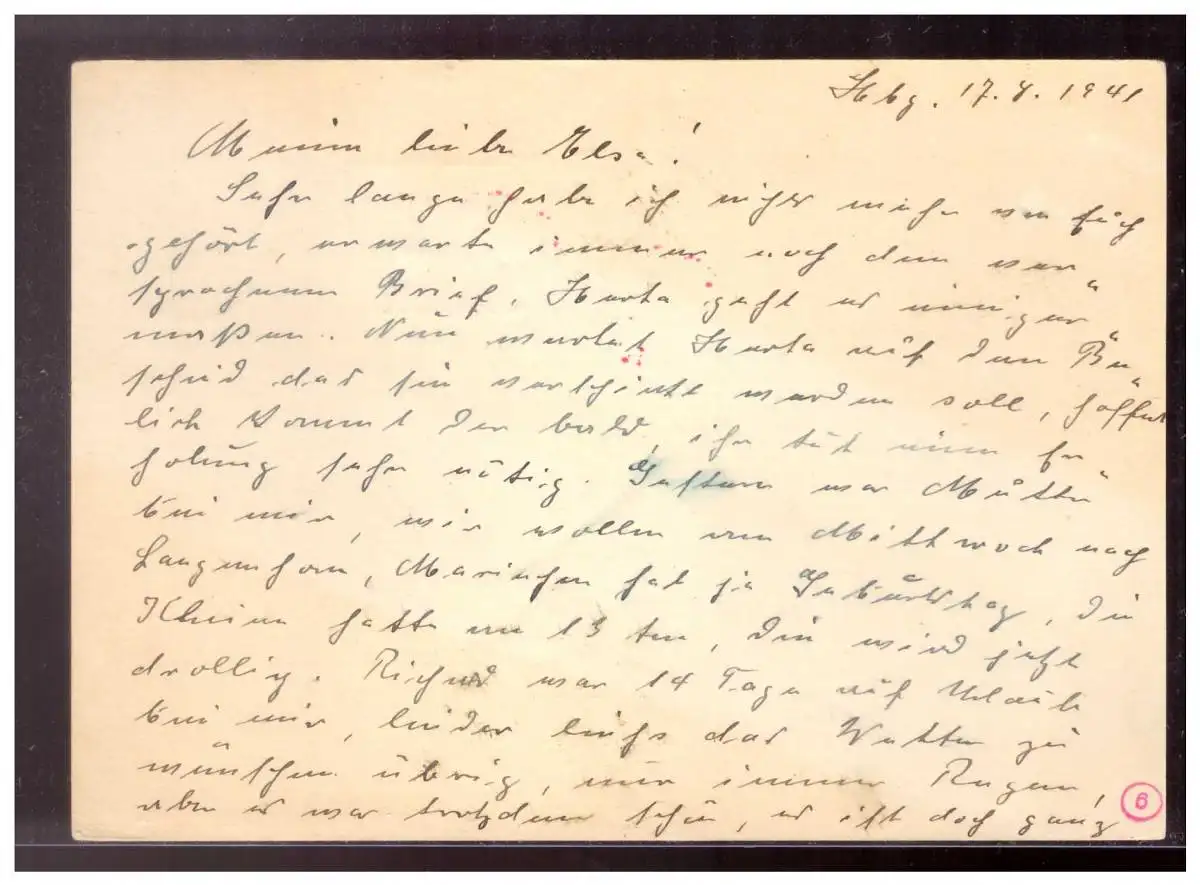 Hbg. 17.8.1941
Meine liebe Elsa!
Sehr lange habe ich nichts mehr von Euch
gehört, erwarte immer noch den ver"
sprochenen Brief. Herta geht es einiger"
maßen. Nun wartet Herta auf den Be"
scheid das sie verschickt werden soll, hoffent"
lich kommt der bald, ihr tut eine Er"
holung sehr nötig. Gestern war Mutti
bei mir, wir wollen am Mittwoch nach
Langenhorn, Mariechen hat ja Geburtstag, die
Kleine hatte am 13 ten, die wird jetzt
drollig. Richard war 14 Tage auf Urlaub
bei mir, leider ließ das Wetter zu
wünschen übrig, nur immer Regen,
aber es war trotzdem schön, es ist doch ganz
6